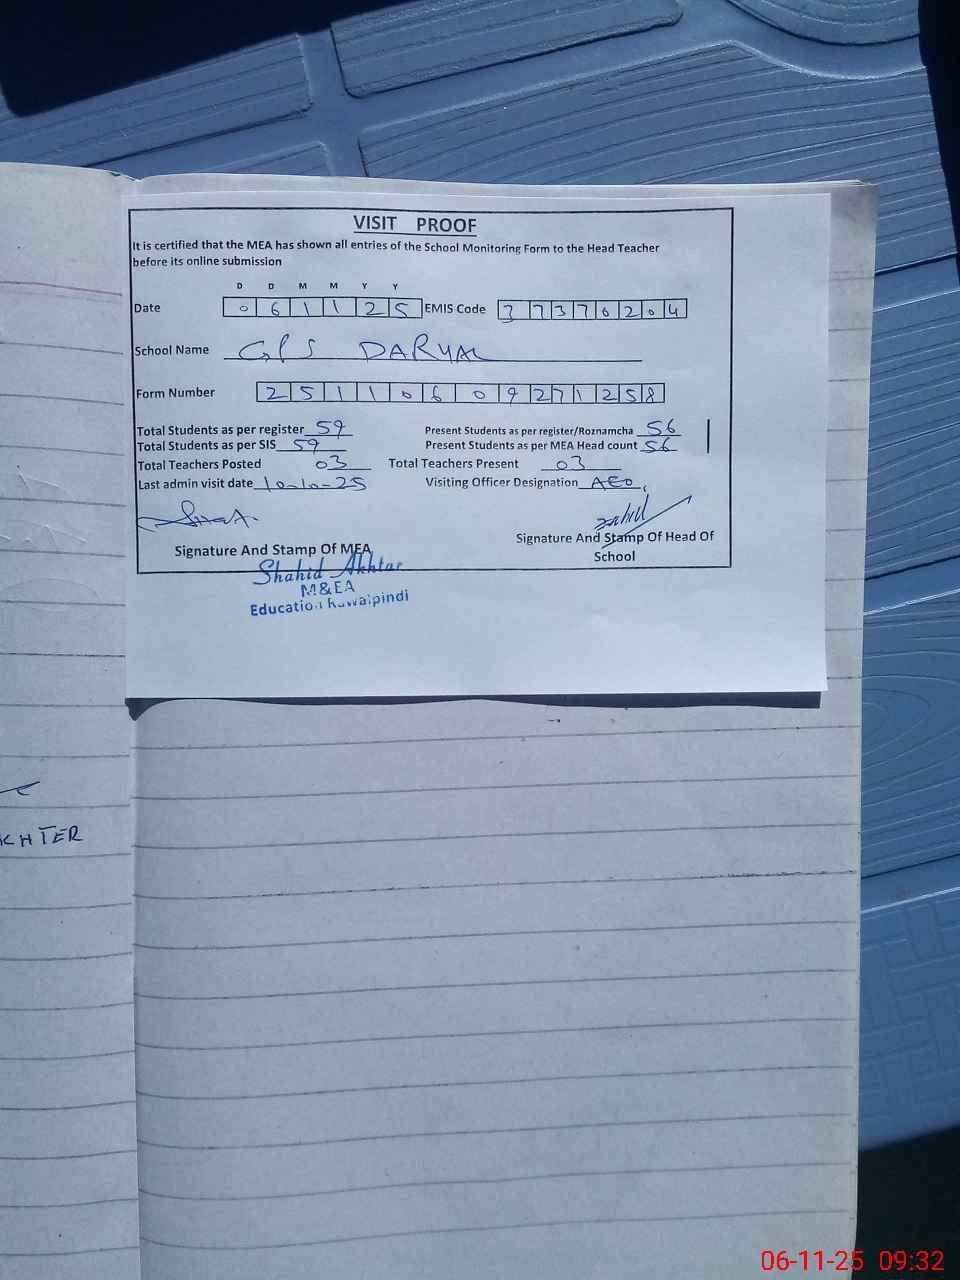 VISIT PROOF
It is certified that the MEA has shown all entries of the School Monitoring Form to the Head Teacher
before its online submission
D D M M Y Y
Date 0 6 1 1 2 5 EMIS Code 3 7 3 7 0 2 0 4
School Name GPS DARYAL
Form Number 2 5 1 1 0 6 0 9 2 7 1 2 5 8
Total Students as per register 59 Present Students as per register/Roznamcha 56
Total Students as per SIS 59 Present Students as per MEA Head count 56
Total Teachers Posted 03 Total Teachers Present 03
Last admin visit date 10-10-25 Visiting Officer Designation AEO
Signature And Stamp Of MEA Signature And Stamp Of Head Of
School
Shahid Akhtar
M&EA
Education Rawalpindi
06-11-25 09:32